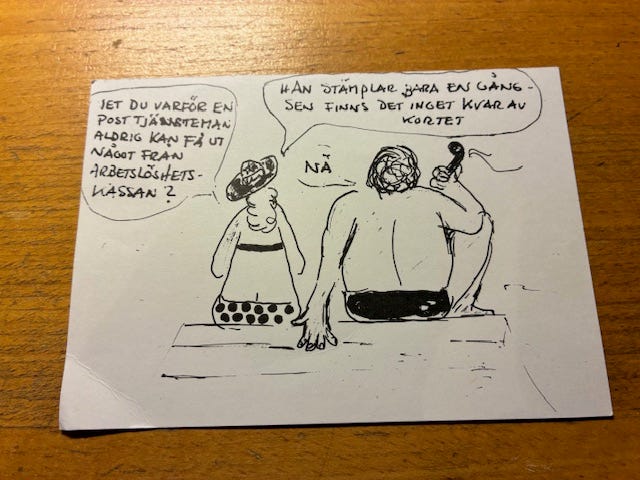 VET DU VARFÖR EN
POSTTJÄNSTEMAN
ALDRIG KAN FÅ UT
NÅGOT FRÅN
ARBETSLÖSHETS-
KASSAN?
NÄ
HAN STÄMPLAR BARA EN GÅNG -
SEN FINNS DET INGET KVAR AV
KORTET